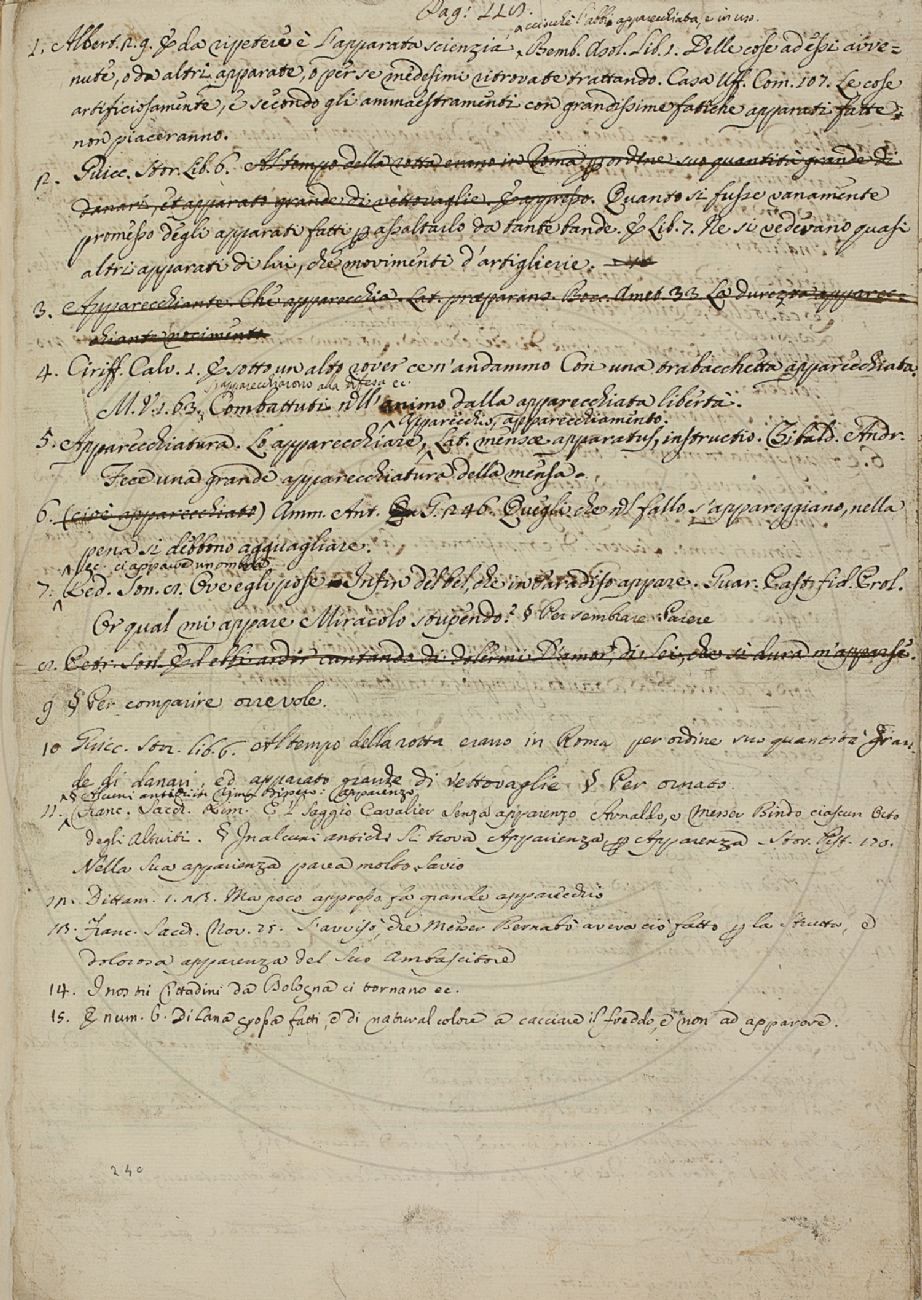 Pag: 119.
acciocchè l'abbi apparecchiata, e in uso.
1. Albert. 2. 9. E da ripetere è l'apparata scienzia. Bemb. Asol. Lib. 1. Delle cose ad essi avve=
nute, o da altri apparate, o per se medesimi ritrovate trattando. Casa Uff. Com. 107. Le cose
artificiosamente, e secondo gli ammaestramenti con grandissime fatiche apparati fatte
non piaceranno.
2. Guicc. Stor. Lib. 6. Al tempo della rotta erano in Roma p ordine suo quantità grande di
danari, et apparato grande di vettovaglie. E appresso. Quanto si fusse vanamente
promesso degli apparati fatti p assaltarlo da tante bande. E Lib. 7. Ne si vedevano quasi
altri apparati di lui, che movimenti d'artiglierie.
3. Apparecchiante. Che apparecchia. Lat. præparans. Bocc. Amet. 33. La durezza apparec=
chiante nocimento
4. Ciriff. Calv. 1. E sotto un alto rover ce n'andammo Con una trabacchetta apparecchiata.
s'apparecchiarono alla difesa ec.
M. V. 1. 63. Combattuti nll'animo dalla apparecchiata libertà.
Apparecchio, apparecchiamento.
5. Apparecchiatura. Lo apparecchiare, Lat. mensæ apparatus, instructio. Zibald. Andr.
Fece una grande apparecchiatura della mensa.
6. (cioè apparecchiato) Amm. Ant. G. 246. Quegli che nl fallo s'appareggiano, nella
pena si debbono agguagliare.
ec. ci apparve un ombra
7. Red. Son. 2. Ov'egli pose Infin del bel, che in Paradiso appare. Guar. Past. fid. Prol.
Or qual mi appare Miracolo stupendo? § Per sembrare Parere
8. Petr. Son. E d esser ardir cantando di dolermi D'amor, di Lei, che si dura m'apparse.
9 § Per comparire orrevole.
10 Guicc. Stor. lib. 6 Al tempo della rotta erano in Roma per ordine suo quantità gran-
de di danari ed apparato grande di vettovaglie § Per ornato
11. Franc. Sacch. Rim. E 'l saggio Cavalier senza apparenza Arnaldo, e Messer Bindo ciascun
degli Altoviti. § In alcuni antichi si trova Apparienza p Apparenza Stor. Pist. 170.
Nella sua apparienza parea molto savio
12. Dittam. 1. 23. Ma poco appresso fa grande apparecchio
13. Franc. Sacch. Nov. 25. S'avvisò, che Messer Bernabò aveva ciò fatto p la strutta, e
dolorosa apparenza del suo Ambasciatore
14. I nostri Cittadini da Bologna ci tornano ec.
15. E num. 6. Di lana grossa fatti, e di natural colore a cacciare il freddo, e non ad apparere.
240